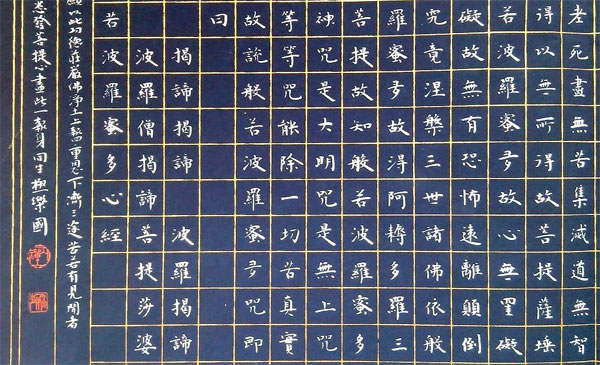 老死盡無苦集滅道無智
得以無所得故菩提薩埵
若波羅蜜多故心無罣礙
礙故無有恐怖遠離顛倒
究竟涅槃三世諸佛依般
羅蜜多故得阿耨多羅三
菩提故知般若波羅蜜多
神咒是大明咒是無上咒
等等咒能除一切苦真實
故說般若波羅蜜多咒即
曰
揭諦揭諦 波羅揭諦
波羅僧揭諦 菩提莎婆
若波羅蜜多心經
願以此功德莊嚴佛淨土上報四重恩下濟三途苦若有見聞者
悉發菩提心盡此一報身同生極樂國